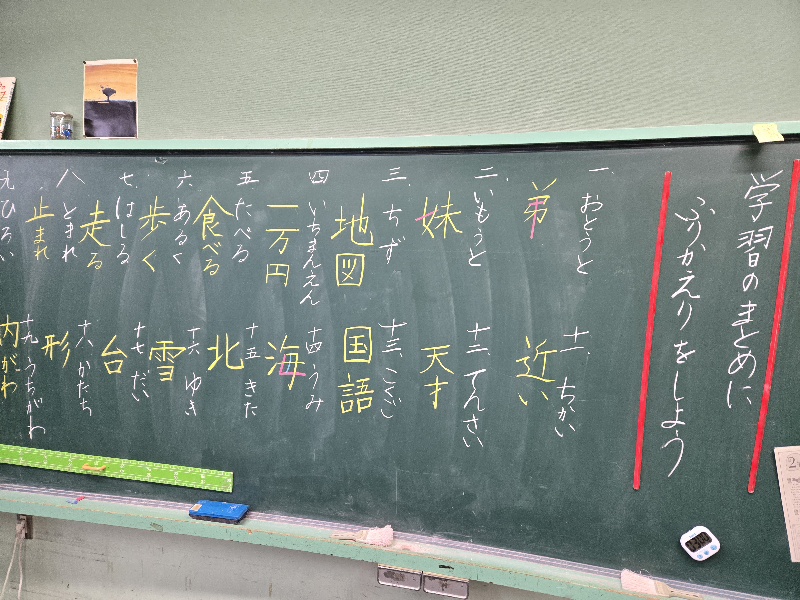 学習のまとめに
ふりかえりをしよう
一、おとうと
弟
二、いもうと
妹
三、ちず
地図
四、いちまんえん
一万円
五、たべる
食べる
六、あるく
歩く
七、はしる
走る
八、とまれ
止まれ
九、ひろい
十一、ちかい
近い
十二、てんさい
天才
十三、こくご
国語
十四、うみ
海
十五、きた
北
十六、ゆき
雪
十七、だい
台
十八、かたち
形
十九、うちがわ
内がわ